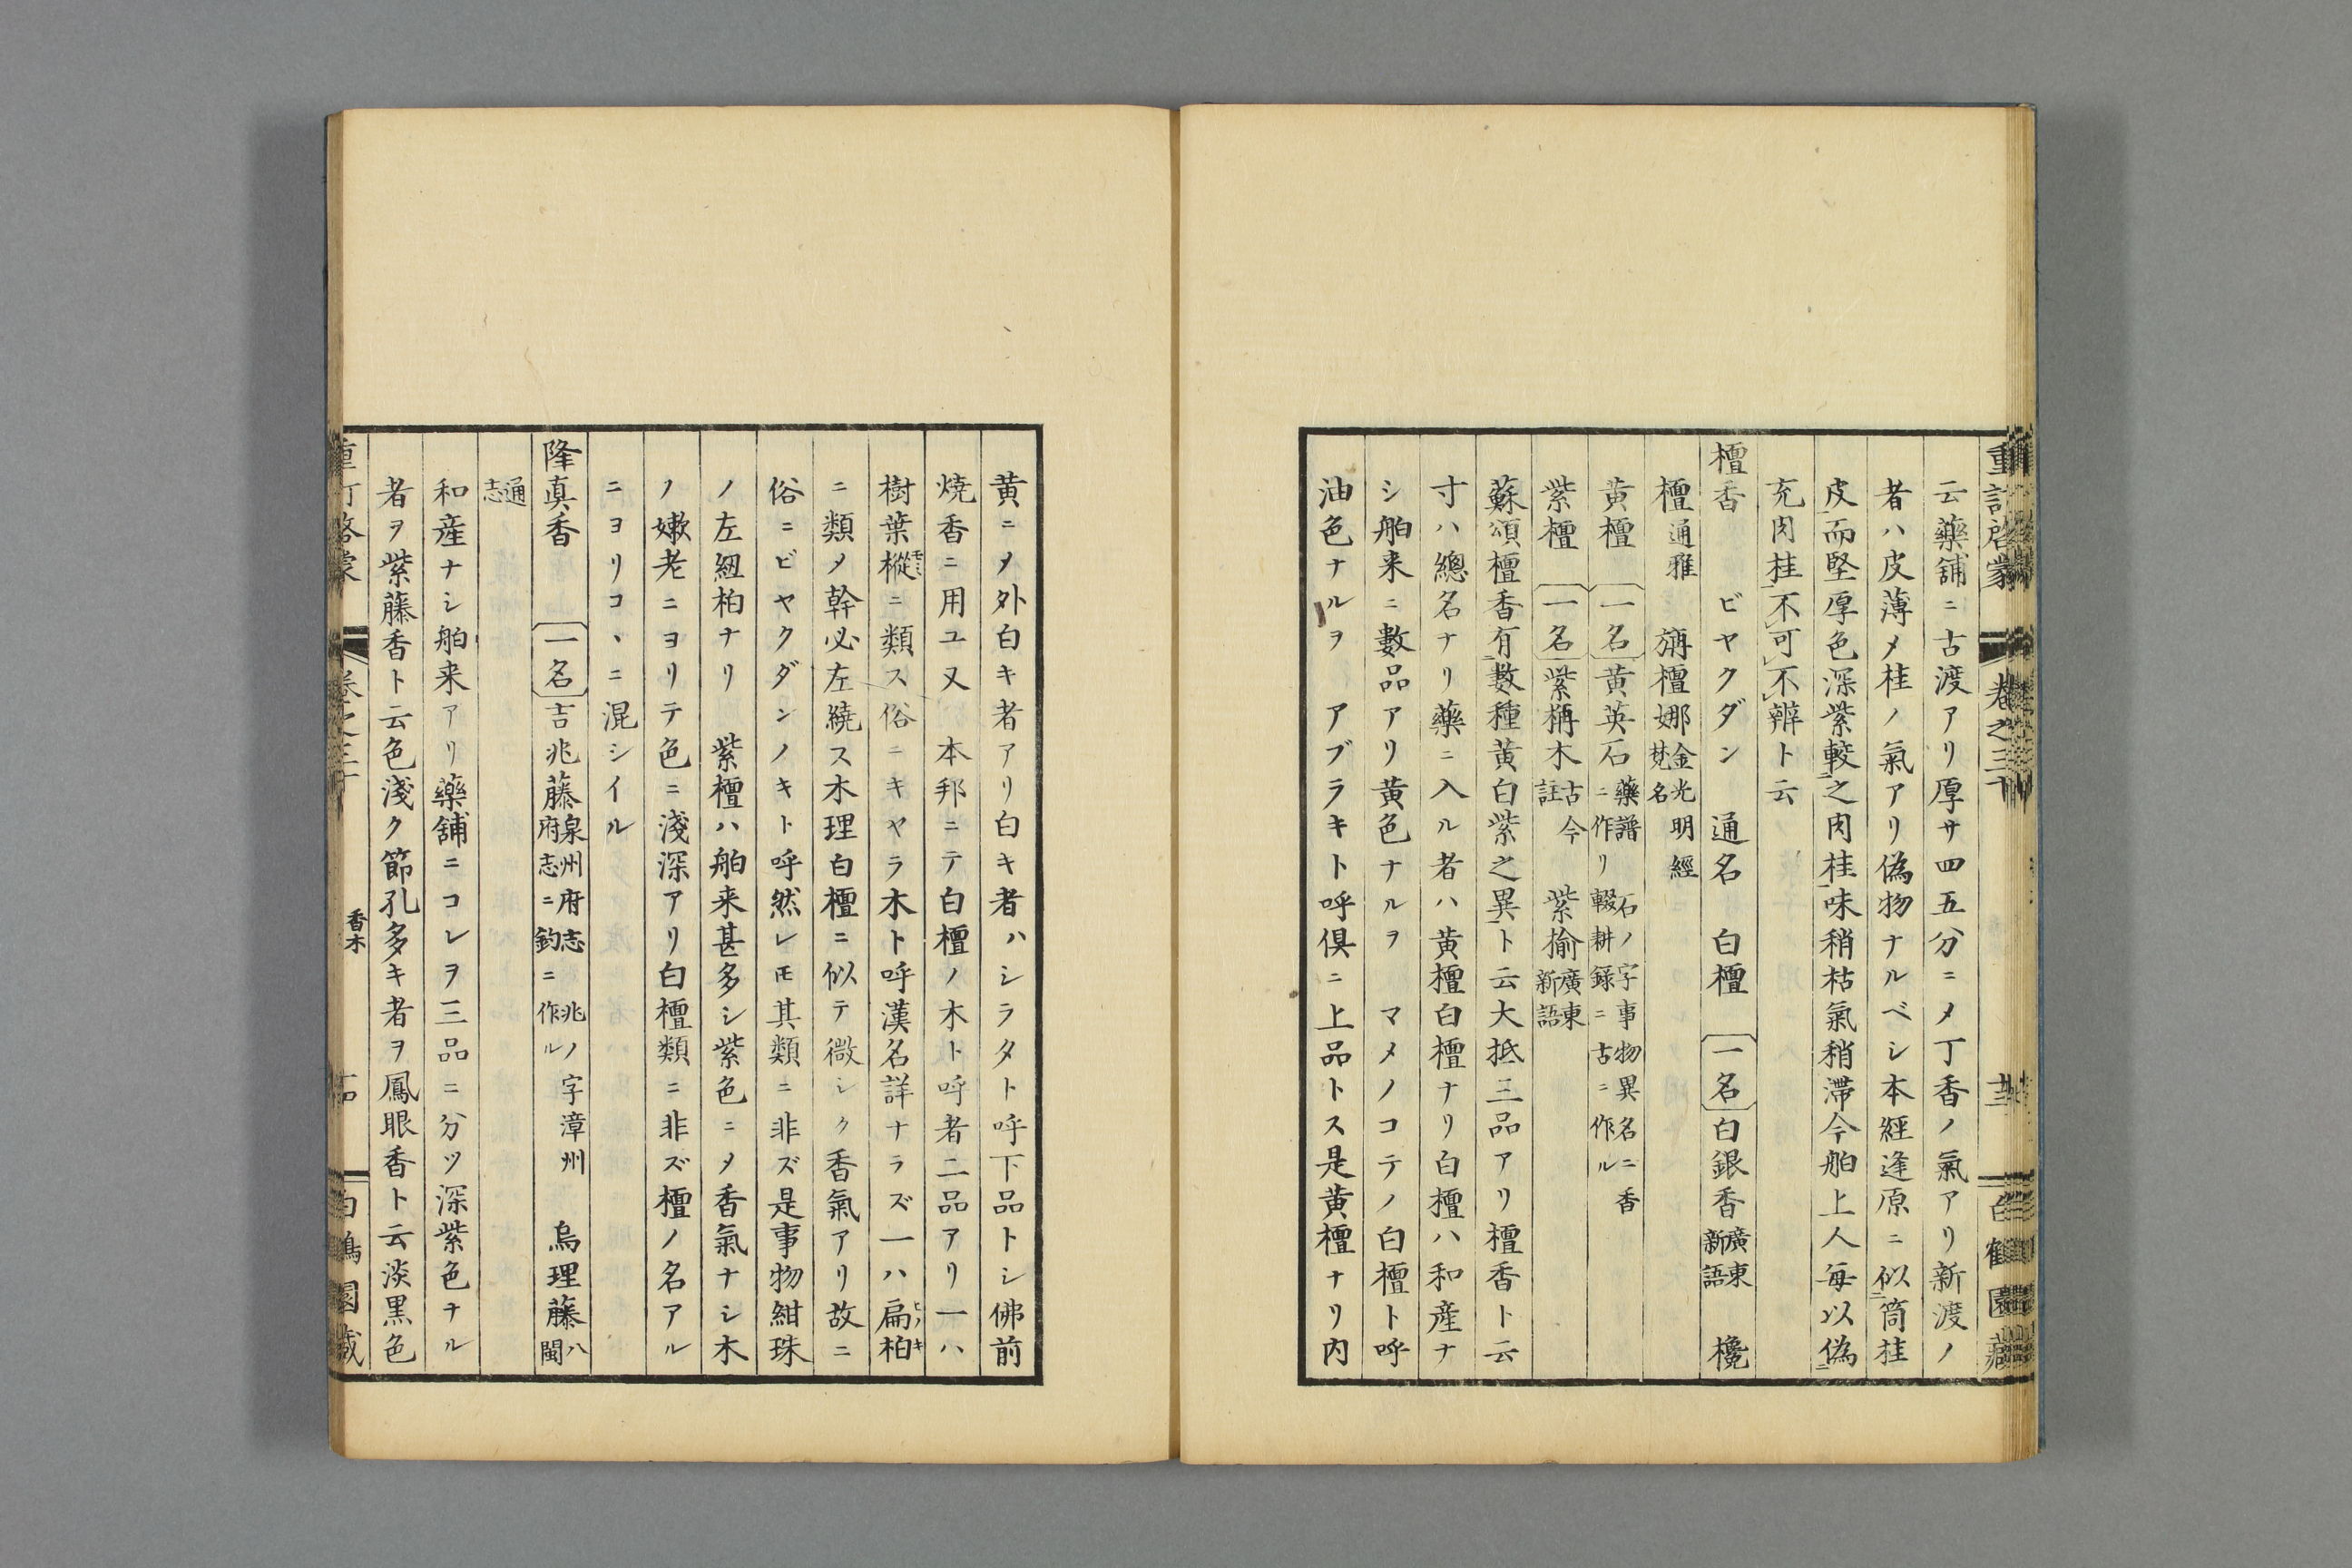 重訂啓蒙 卷之三十 白鶴園藏
云藥舖ニ古渡アリ厚サ四五分ニメ丁香ノ氣アリ新渡ノ
者ハ皮薄メ桂ノ氣アリ偽物ナルベシ本經逢原ニ似筒桂
皮而堅厚色深紫較之肉桂味稍枯氣稍滯今舶上人每以偽
充肉桂不可不辨ト云
檀香 ビヤクダン 通名 白檀 一名 白銀香 廣東新語 欃
檀 通雅 旃檀娜 金光明經梵名
黃檀 一名 黃英石 藥譜ニ作リ 石ノ字事物異名ニ香輟耕録ニ古ニ作ル
紫檀 一名 紫栴木 古今註 紫揄 廣東新語
蘇頌檀香有數種黃白紫之異ト云大抵三品アリ檀香ト云
寸ハ總名ナリ藥ニ入ル者ハ黃檀白檀ナリ白檀ハ和産ナ
シ舶来ニ數品アリ黃色ナルヲ マメノコテノ白檀ト呼
油色ナルヲ アブラキト呼倶ニ上品トス是黃檀ナリ内
黃ニメ外白キ者アリ白キ者ハシラタト呼下品トシ佛前
焼香ニ用ユ又 本邦ニテ白檀ノ木ト呼者二品アリ一ハ
樹葉樅モミニ類ス俗ニキヤラ木ト呼漢名詳ナラズ一ハ扁柏ヒノキ
ニ類メ幹必左繞ス木理白檀ニ似テ微シク香氣アリ故ニ
俗ニビヤクダンノキト呼然レモ其類ニ非ズ是事物紺珠
ノ左紐柏ナリ 紫檀ハ舶来甚多シ紫色ニメ香氣ナシ木
ノ嫩老ニヨリテ色ニ淺深アリ白檀類ニ非ズ檀ノ名アル
ニヨリコヽニ混シイル
隆真香 一名 吉兆藤 泉州府志 兆ノ字漳州府志ニ鈞ニ作ル 烏理藤 八閩
通志
和産ナシ舶来アリ藥舖ニコレヲ三品ニ分ツ深紫色ナル
者ヲ紫藤香ト云色淺ク節孔多キ者ヲ鳳眼香ト云淡黒色
香木